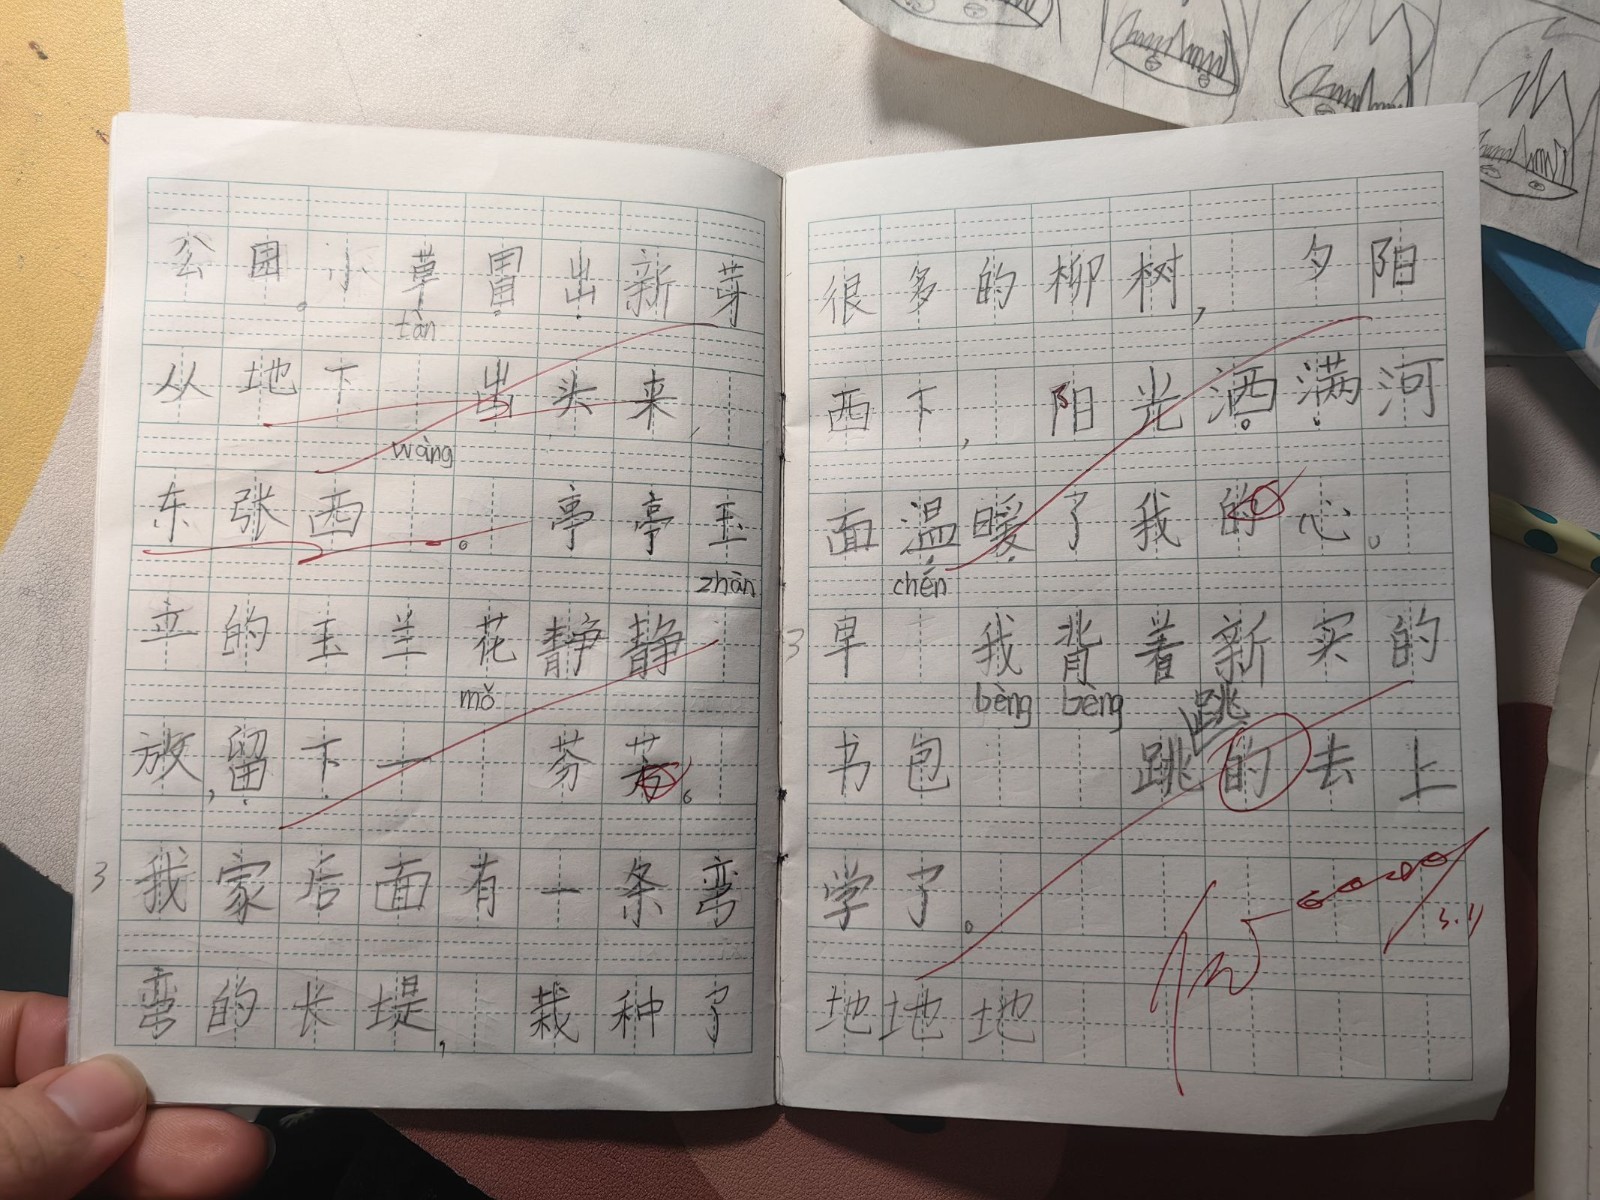 公园。小草冒出新芽
tàn
从地下 出头来
wàng
东张西 。亭亭玉
zhàn
立的玉兰花静静
mǒ
放,留下一 芬芳。
3 我家后面有一条弯
弯的长堤,栽种了
很多的柳树,夕阳
西下,阳光洒满河
面温暖了我的心。
chén
3 早 我背着新买的
bèng bèng 跳
书包 跳的去上
学了。
3.11
地地地